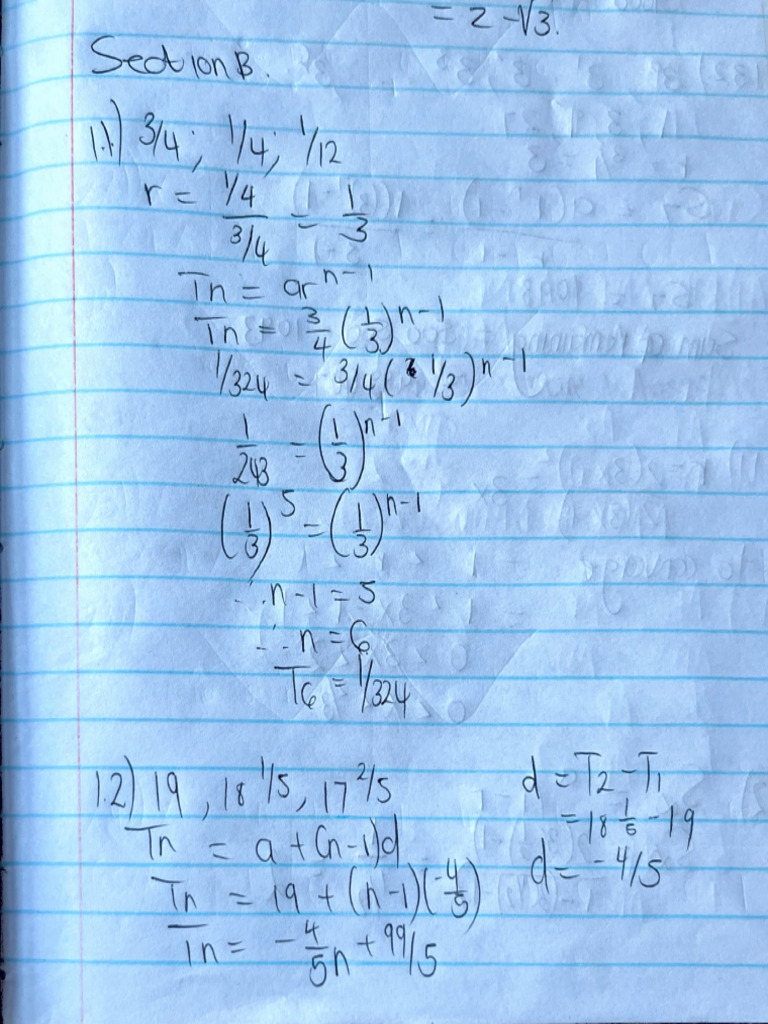 = 2 - √3.
Section B.
1.1) 3/4 ; 1/4 ; 1/12
r = (1/4)/(3/4) = 1/3
Tn = ar^(n-1)
Tn = 3/4 (1/3)^(n-1)
1/324 = 3/4 (1/3)^(n-1)
1/243 = (1/3)^(n-1)
(1/3)^5 = (1/3)^(n-1)
∴ n-1 = 5
∴ n = 6
T6 = 1/324
1.2) 19 , 18 1/5 , 17 2/5
Tn = a + (n-1)d
Tn = 19 + (n-1)(-4/5)
Tn = -4/5 n + 99/5
d = T2 - T1
= 18 1/5 - 19
d = -4/5